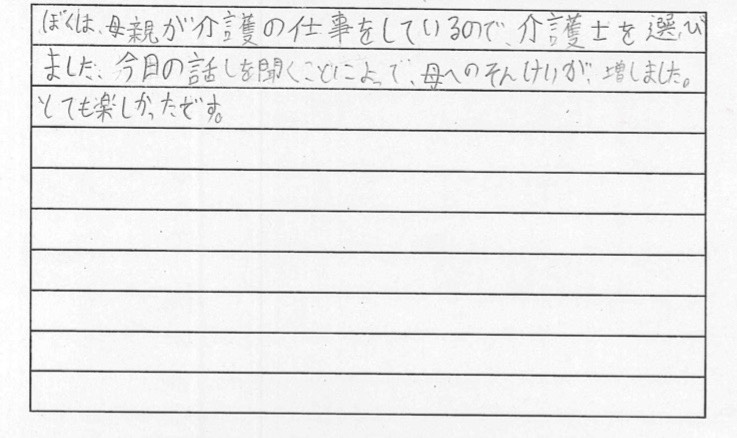 ぼくは、母親が介護の仕事をしているので、介護士を選び
ました。今日の話しを聞くことによって、母へのそんけいが、増しました。
とても楽しかったです。